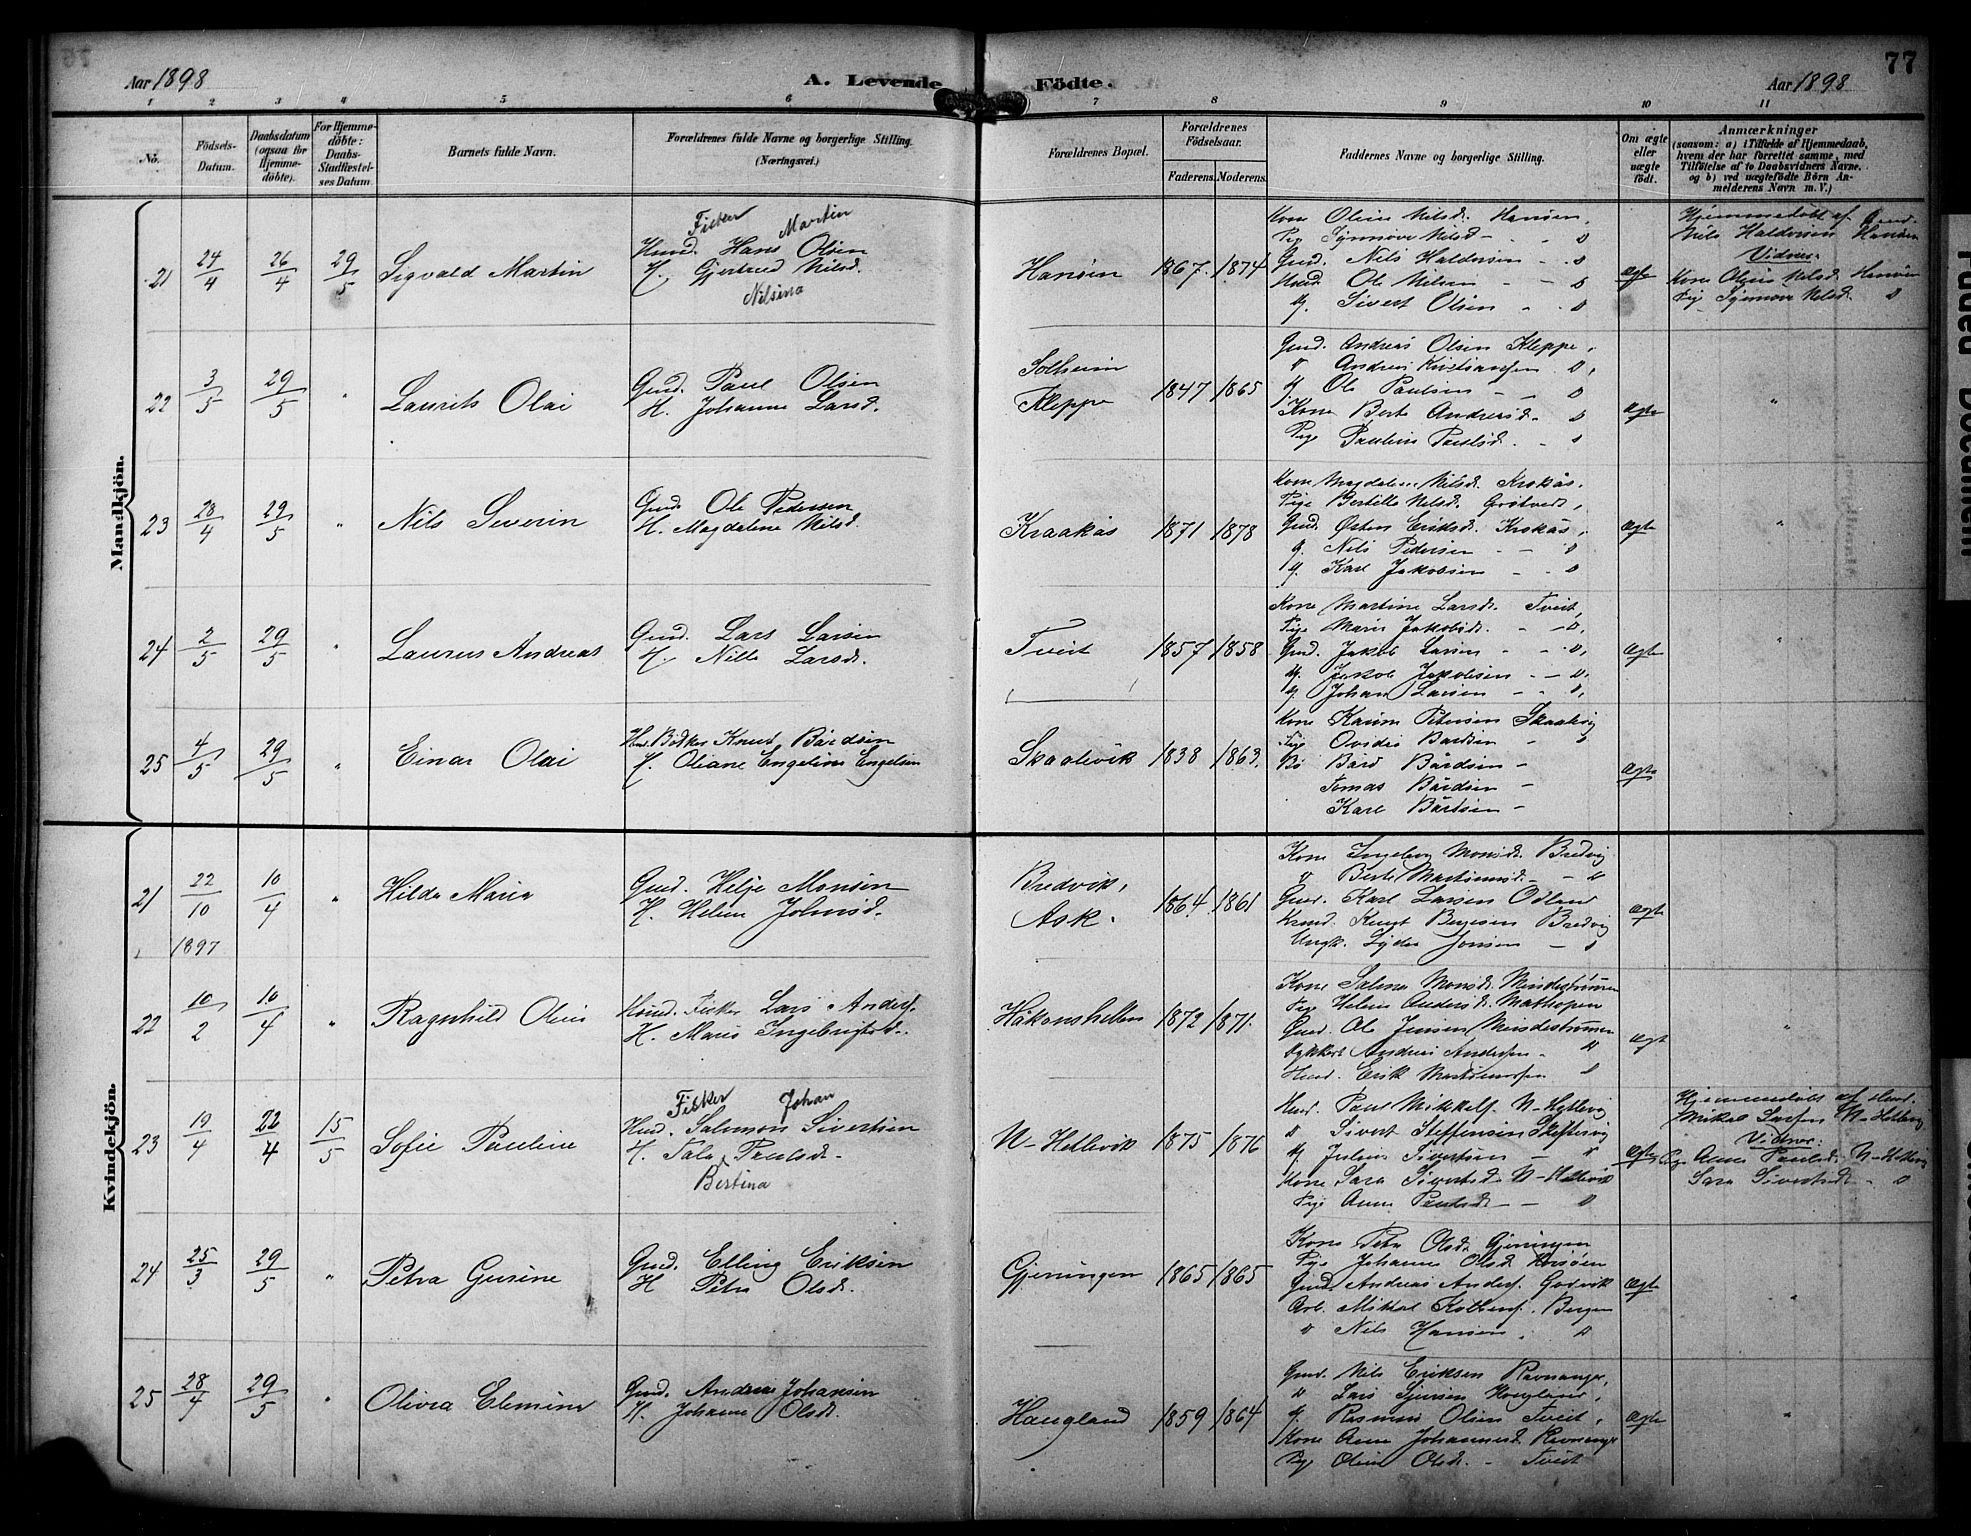 Aar 1898
A. Levende Födte.
77
Aar 1898
1 2 3 4 5 6 7 8 9 10 11
No.
Födsels-Datum.
Daabsdatum (ogsaa for Hjemme-döbte).
For Hjemme-döbte: Daabs-Stadfæstel-ses Datum
Barnets fulde Navn.
Forældrenes fulde Navne og borgerlige Stilling. (Næringsvei.)
Forældrenes Bopæl.
Forældrenes Födselsaar.
Faderens. Moderens.
Faddernes Navne og borgerlige Stilling.
Om ægte eller uægte födt.
Anmærkninger
(saasom: a) i Tilfælde af Hjemmedaab, hvem der har forrettet samme, med Tilföielse af to Daabsvidners Navne, og b) ved uægtefödte Börn Anmelderens Navn m. V.)
Mandkjön.
21 24/4 26/4 29/5 Sigvald Martin
Fisker Martin
Huud. Hans Olsen
H. Gjertrud Nilsd.
Nilsina
Hansen 1867. 1874
Kone Oline Nilsd. Hansen,
Pige Synnøve Nilsd - - D
Gmd. Nils Haldorsen - D
Ole Nilsen - - D
Sivert Olsen - - D
Ægte
Hjemmedøbt af Gmd.
Nils Haldorsen Hansen
Vidner:
Kone Oline Nilsd. Hansen
Pige Synnøve Nilsd. D
22 3/5 29/5 " Laurits Olai
Gmd. Paul Olsen
H. Johanne Larsd.
Solheim
Kleppe
1847 1865
Gmd. Andreas Olsen Kleppe,
D Andreas Kristiansen D,
Ole Paulsen - - D
Kone Berte Andreasd. D
Pige Pauline Paulsd. - D
Ægte "
23 28/4 29/5 " Nils Severin
Gmd Ole Pedersen
H. Magdalene Nilsd.
Kraakås 1871 1878
Kone Magdalene Nilsd. Krokås,
Pige Bertille Nilsd.
Gmd. Østen Eriksd. Krokås,
Nils Pedersen - - D
Karl Jakobsen - - D
Ægte "
24 2/5 29/5 " Laurus Andreas
Gmd. Lars Larsen
H. Nille Larsd.
Tveit 1857 1858
Kone Martine Larsd. Tveit,
Pige Marie Jakobsd. - - D,
Gmd. Jakob Larsen - - D,
Jakob Jakobsen - - D,
Johan Larsen - - D,
Ægte "
25 4/5 29/5 " Einar Olai
Bødker Knut Bårdsen
H. Oliane Engeline Engelsen
Skaalevik 1838 1863.
Kone Karine Petersen Skaalevig
Pige Ovidia Bardsen - D
Bård Bårdsen -
Tomas Bårdsen -
Karl Bårdsen -
Ægte
Kvindekjön.
21 22/10 1897 10/4 " Hilda Maria
Gmd. Helje Monsen
H. Helene Johnsd.
Bredvik,
Ask.
1864 1861
Kone Ingeborg Monsd. Bredvig
D Berte Martinusd. - - D
Gmd. Karl Larsen Odland
Knut Bergesen Bredvig
Ungk. Lyder Jonsen - D
Ægte
22 10/2 10/4 " Ragnhild Oline
Huud. Fisker Lars Anders.
H. Marie Ingebrigtsd.
Håkonshellen 1872 1871.
Kone Salmea Monsd. Mindestrømmen
Pige Helene Andersd. Mathopen
Gmd. Ole Jensen Mindestrømmen
Andreas Andersen - D
Huud. Erik D
Ægt "
23 19/4 22/4 15/5 Sofie Pauline
Fisker Johan
Huud. Salomon Sivertsen
H. Tala Paulsd.
Bertina
N-Hetlevik 1875 1876
Huud. Paul Mikkels. N-Hetlevig
D Sivert Steffensen Skiftesvig
Julius Sivertsen - D
Kone Sara Sivertsd. N-Hetlevik
Pige Anne Paulsd - - D
Ægte
Hjemmedøbt af Huud.
Mikal N-Hetlevig
Vidner:
Pige Anne Paulsd. N-Hetlevig
Sara Sivertsd. - D
24 25/3 29/5 " Petra Gurine
Gmd. Elling Eriksen
H Petra Olsd.
Gjerningen 1865 1865
Kone Petra Olsd. Gjerningen
Pige Johanne Olsd.
Gmd. Andreas Anders. Godvik
Arb. Mikkal Bergen
D Nils Hansen, D
Ægte "
25 28/4 29/5 " Olivia Elemine
Gmd. Andreas Johansen
H. Johanne Olsd.
Haugland 1859 1864
Gmd. Nils Eriksen Ravnanger,
D Lars Haugland,
Rasmus Olsen Tveit,
Kone Anne Johannesd. Ravnanger
Pige Oline Olsd. - Tveit
Ægte "